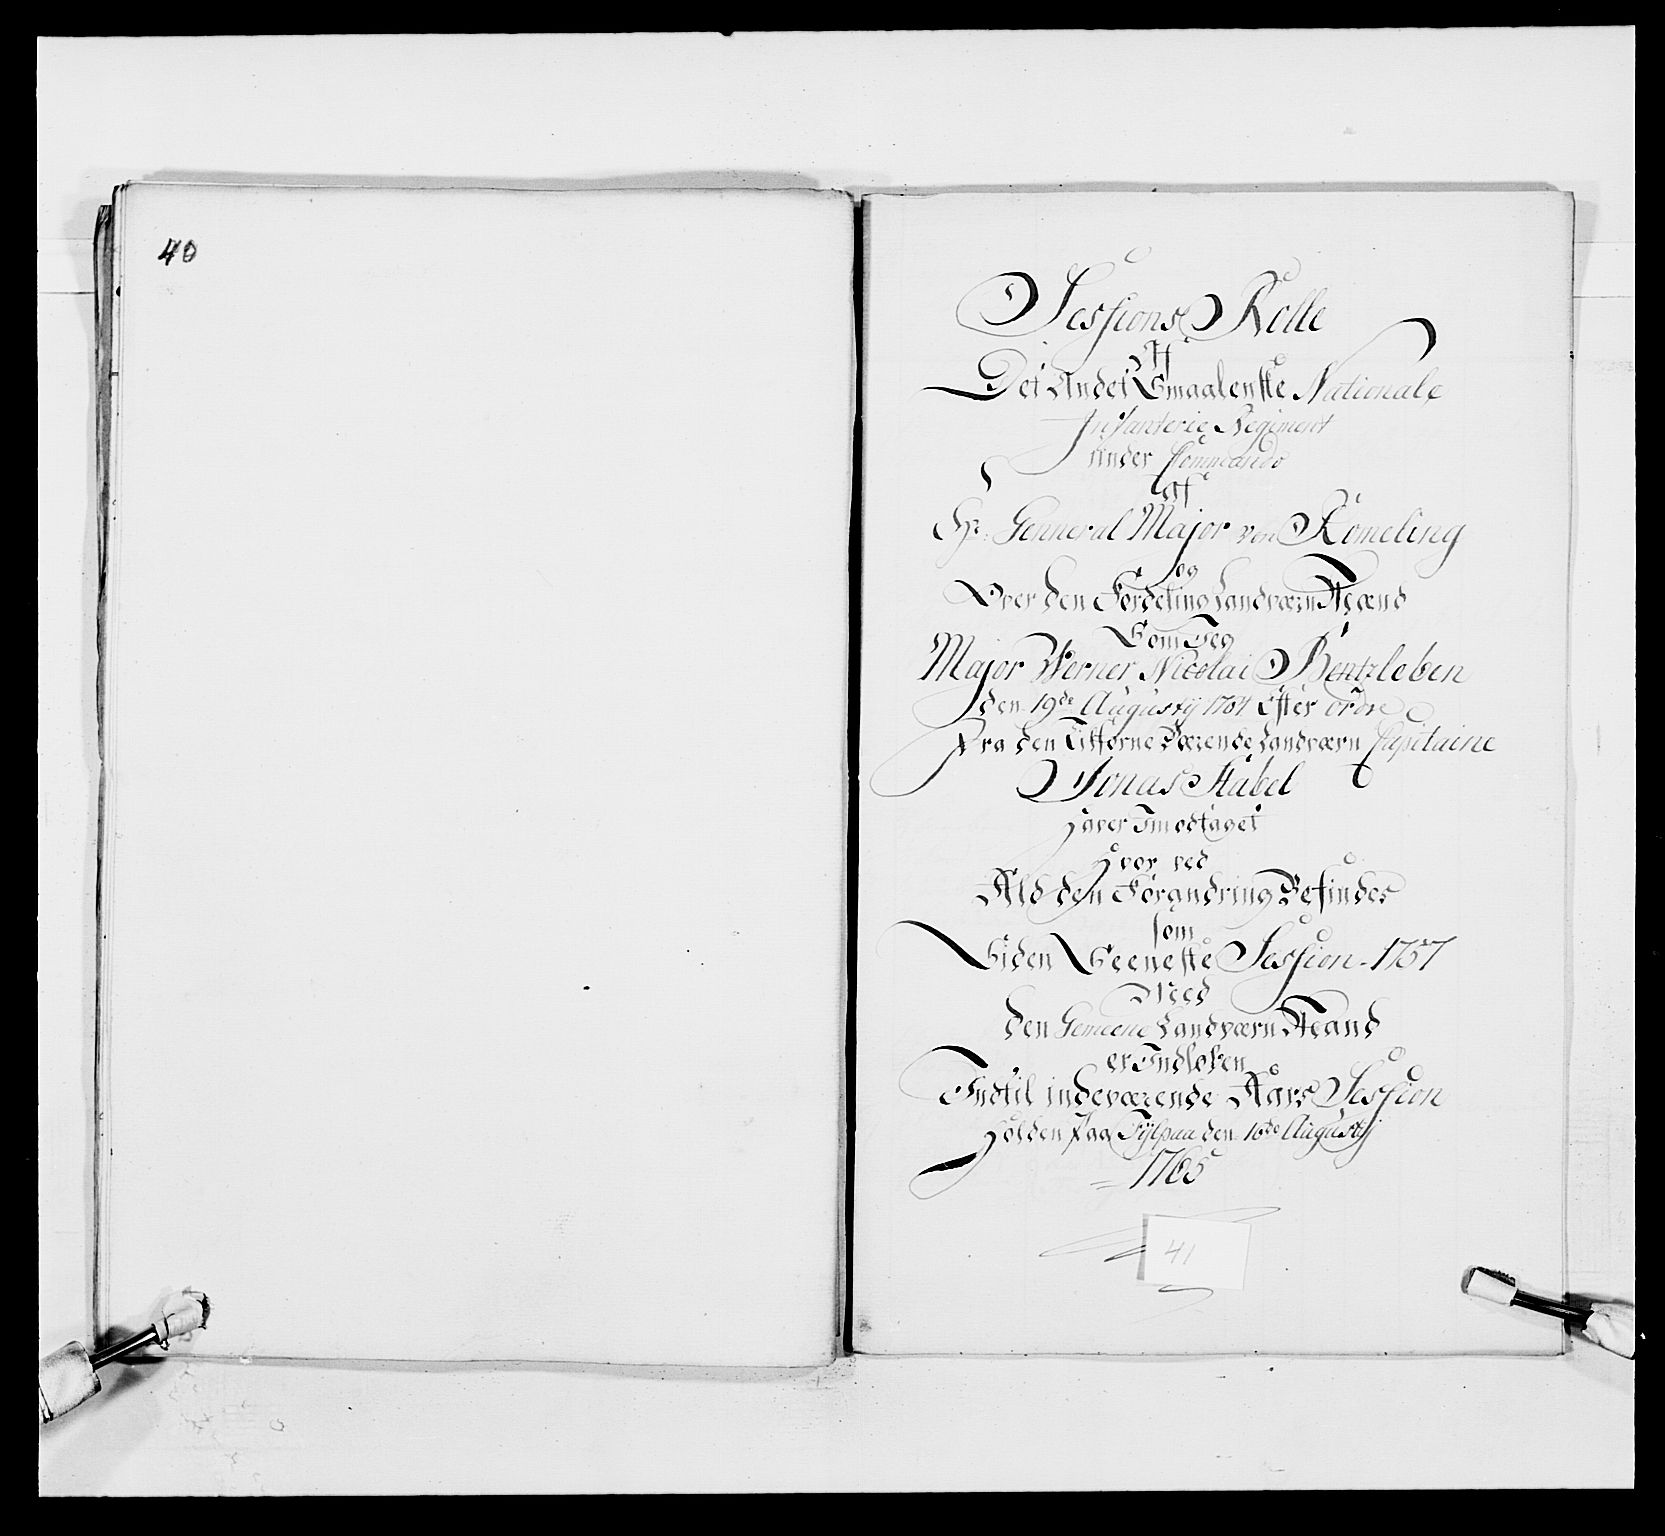 40
Sessions Rolle
Af
Det Andet Smaalenske Nationale
Infanterie Regiment
Under Commando
Af
Hr: Genneral Major von Römeling
og
Over den Fordeling Landværn Mænd
Som Jeg
Major Werner Nicolai Bentzleben
den 19de Augustij 1764 Efter Ordre
Fra den Tilforne Værende Landværn Capitaine
Jonas Stabel
Haver Imodtaget
Hvor ved
Ald den Forandring Befindes
som
Siden Seeneste Session 1757
Med
den Gemeene Landværn Mand
er Indløben
Indtil indeværende Aars Session
Holden Paa den 16de Augustij
1765
41